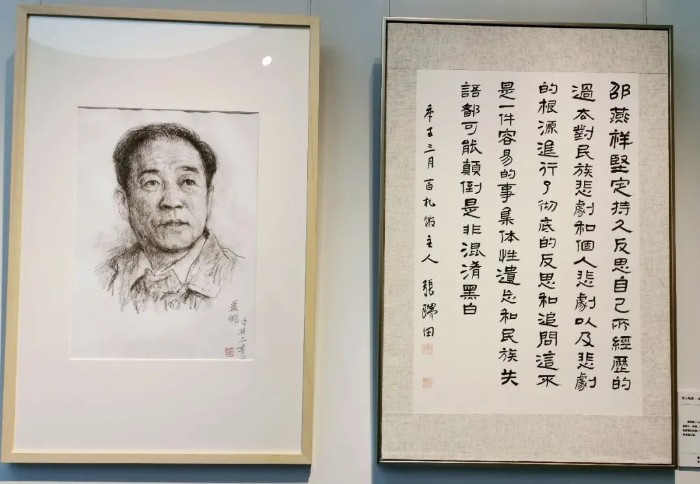 邵燕祥堅定持久反思自己所經歷的
過去對民族悲劇和個人悲劇以及悲劇
的根源進行了彻底的反思和追問這不
是一件容易的事集体性遺忘和民族失
語都可能顛倒是非混淆黑白
辛丑三月百札館主人張瑞田